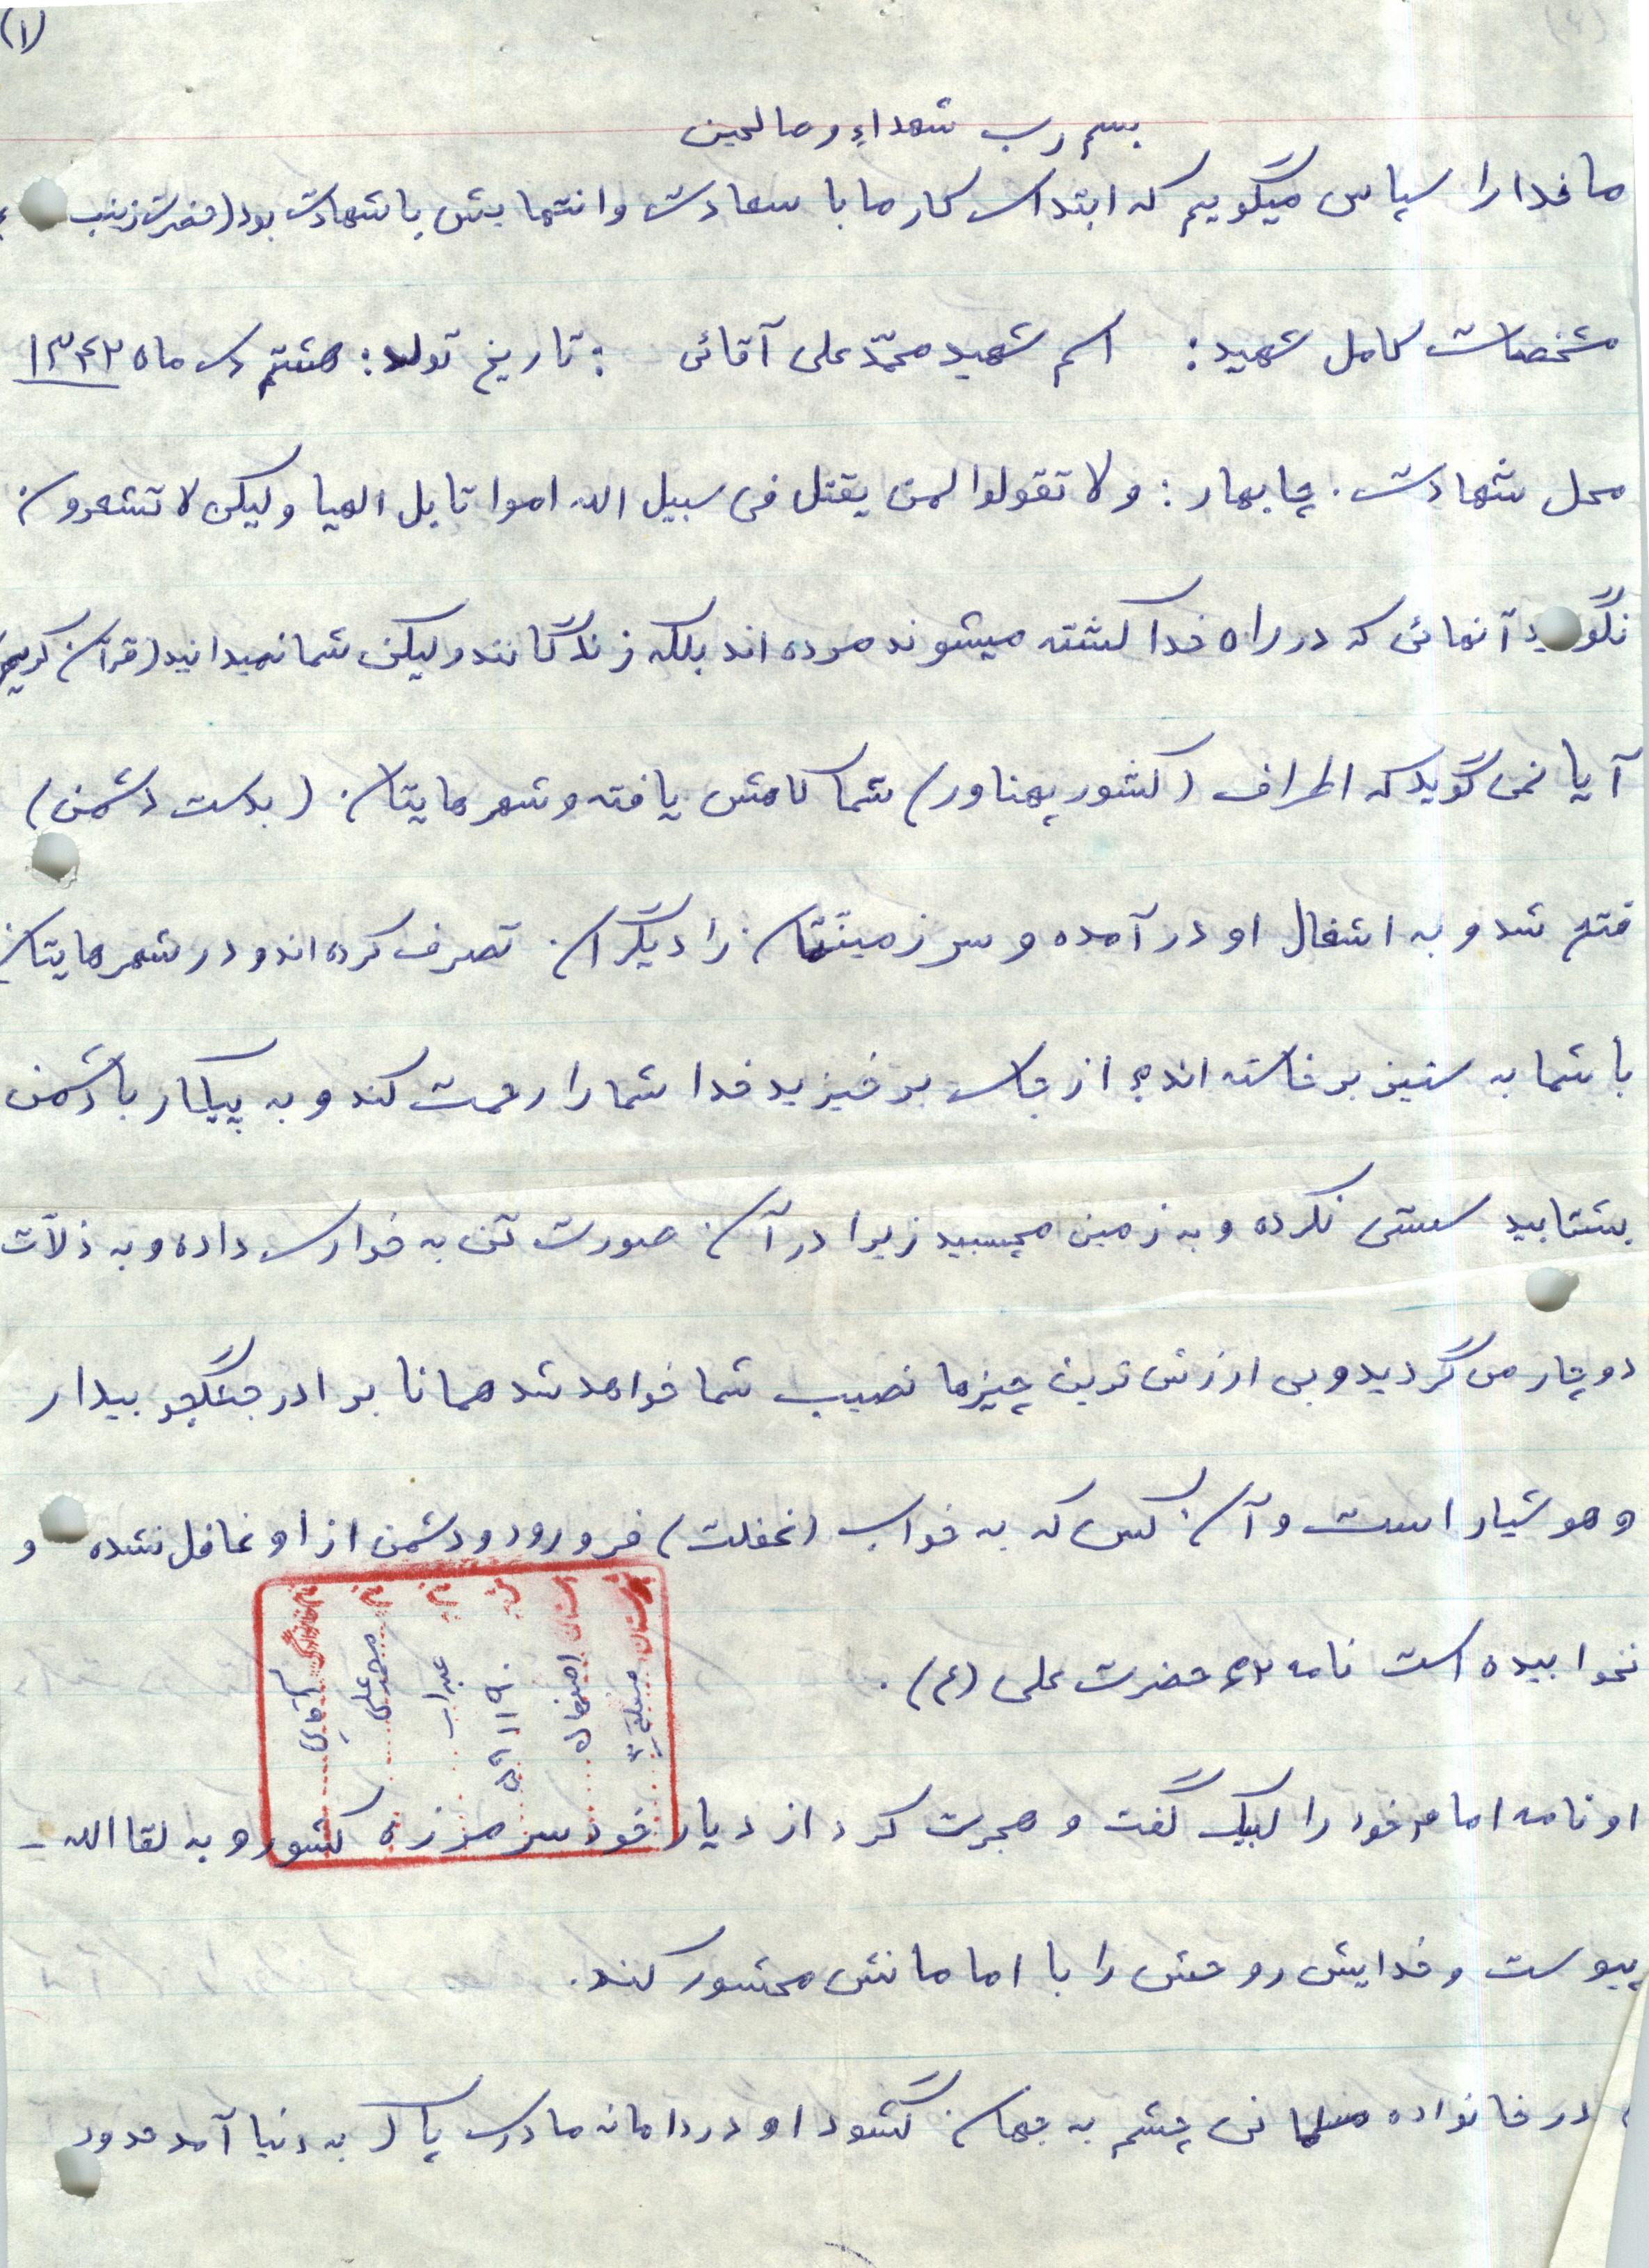 (۱)
بسم رب شهداء و صالحین
ما خدا را سپاس میگوییم که ابتدای کار ما با سعادت و انتهایش با شهادت بود (حضرت زینب
مشخصات کامل شهید: اسم شهید محمّد علی آقائی : تاریخ تولد: هشتم دی ماه ۱۳۴۲
محل شهادت. چابهار: و لا تقولوا لمن یقتل فی سبیل الله امواتا بل الهیا ولیکن لا تشعرون
نگوید آنهائی که در راه خدا کشته میشوند مرده اند بلکه زندگانند ولیکن شما نمیدانید (قرآن کریم)
آیا نمی گوید که اطراف (کشور پهناور) شما کاهش یافته و شهرهایتان (بدست دشمن)
فتح شد و به اشغال او درآمده و سرزمینتان را دیگران تصرف کرده اند و در شهرهایتان
با شما به ستیز برخاسته اند، از جای برخیزید خدا شما را رحمت کند و به پیکار با دشمن
بشتابید سستی نکرده و به زمین مچسبید زیرا در آن صورت تن به خواری داده و به ذلّت
دوچار می گردید و بی ارزش ترین چیزها نصیب شما خواهد شد همانا برادر جنگجو بیدار
و هوشیار است و آن کس که به خواب (غفلت) فرو رود دشمن از او غافل نشده و
نخوابیده است نامه ۶۲ حضرت علی (ع).
استان
شهرستان اصفهان
کد ۵۹۱۱۹۰
نام
نام محمد علی
نام خانوادگی آقایی
او نامه امام خود را لبیک گفت و هجرت کرد از دیار خود سر مرز کشور و به لقا الله -
پیوست و خدایش روحش را با امامانش محشور کند.
در خانواده مسلمانی چشم به جهان گشود او در دامانه مادری پاک به دنیا آمد حدود